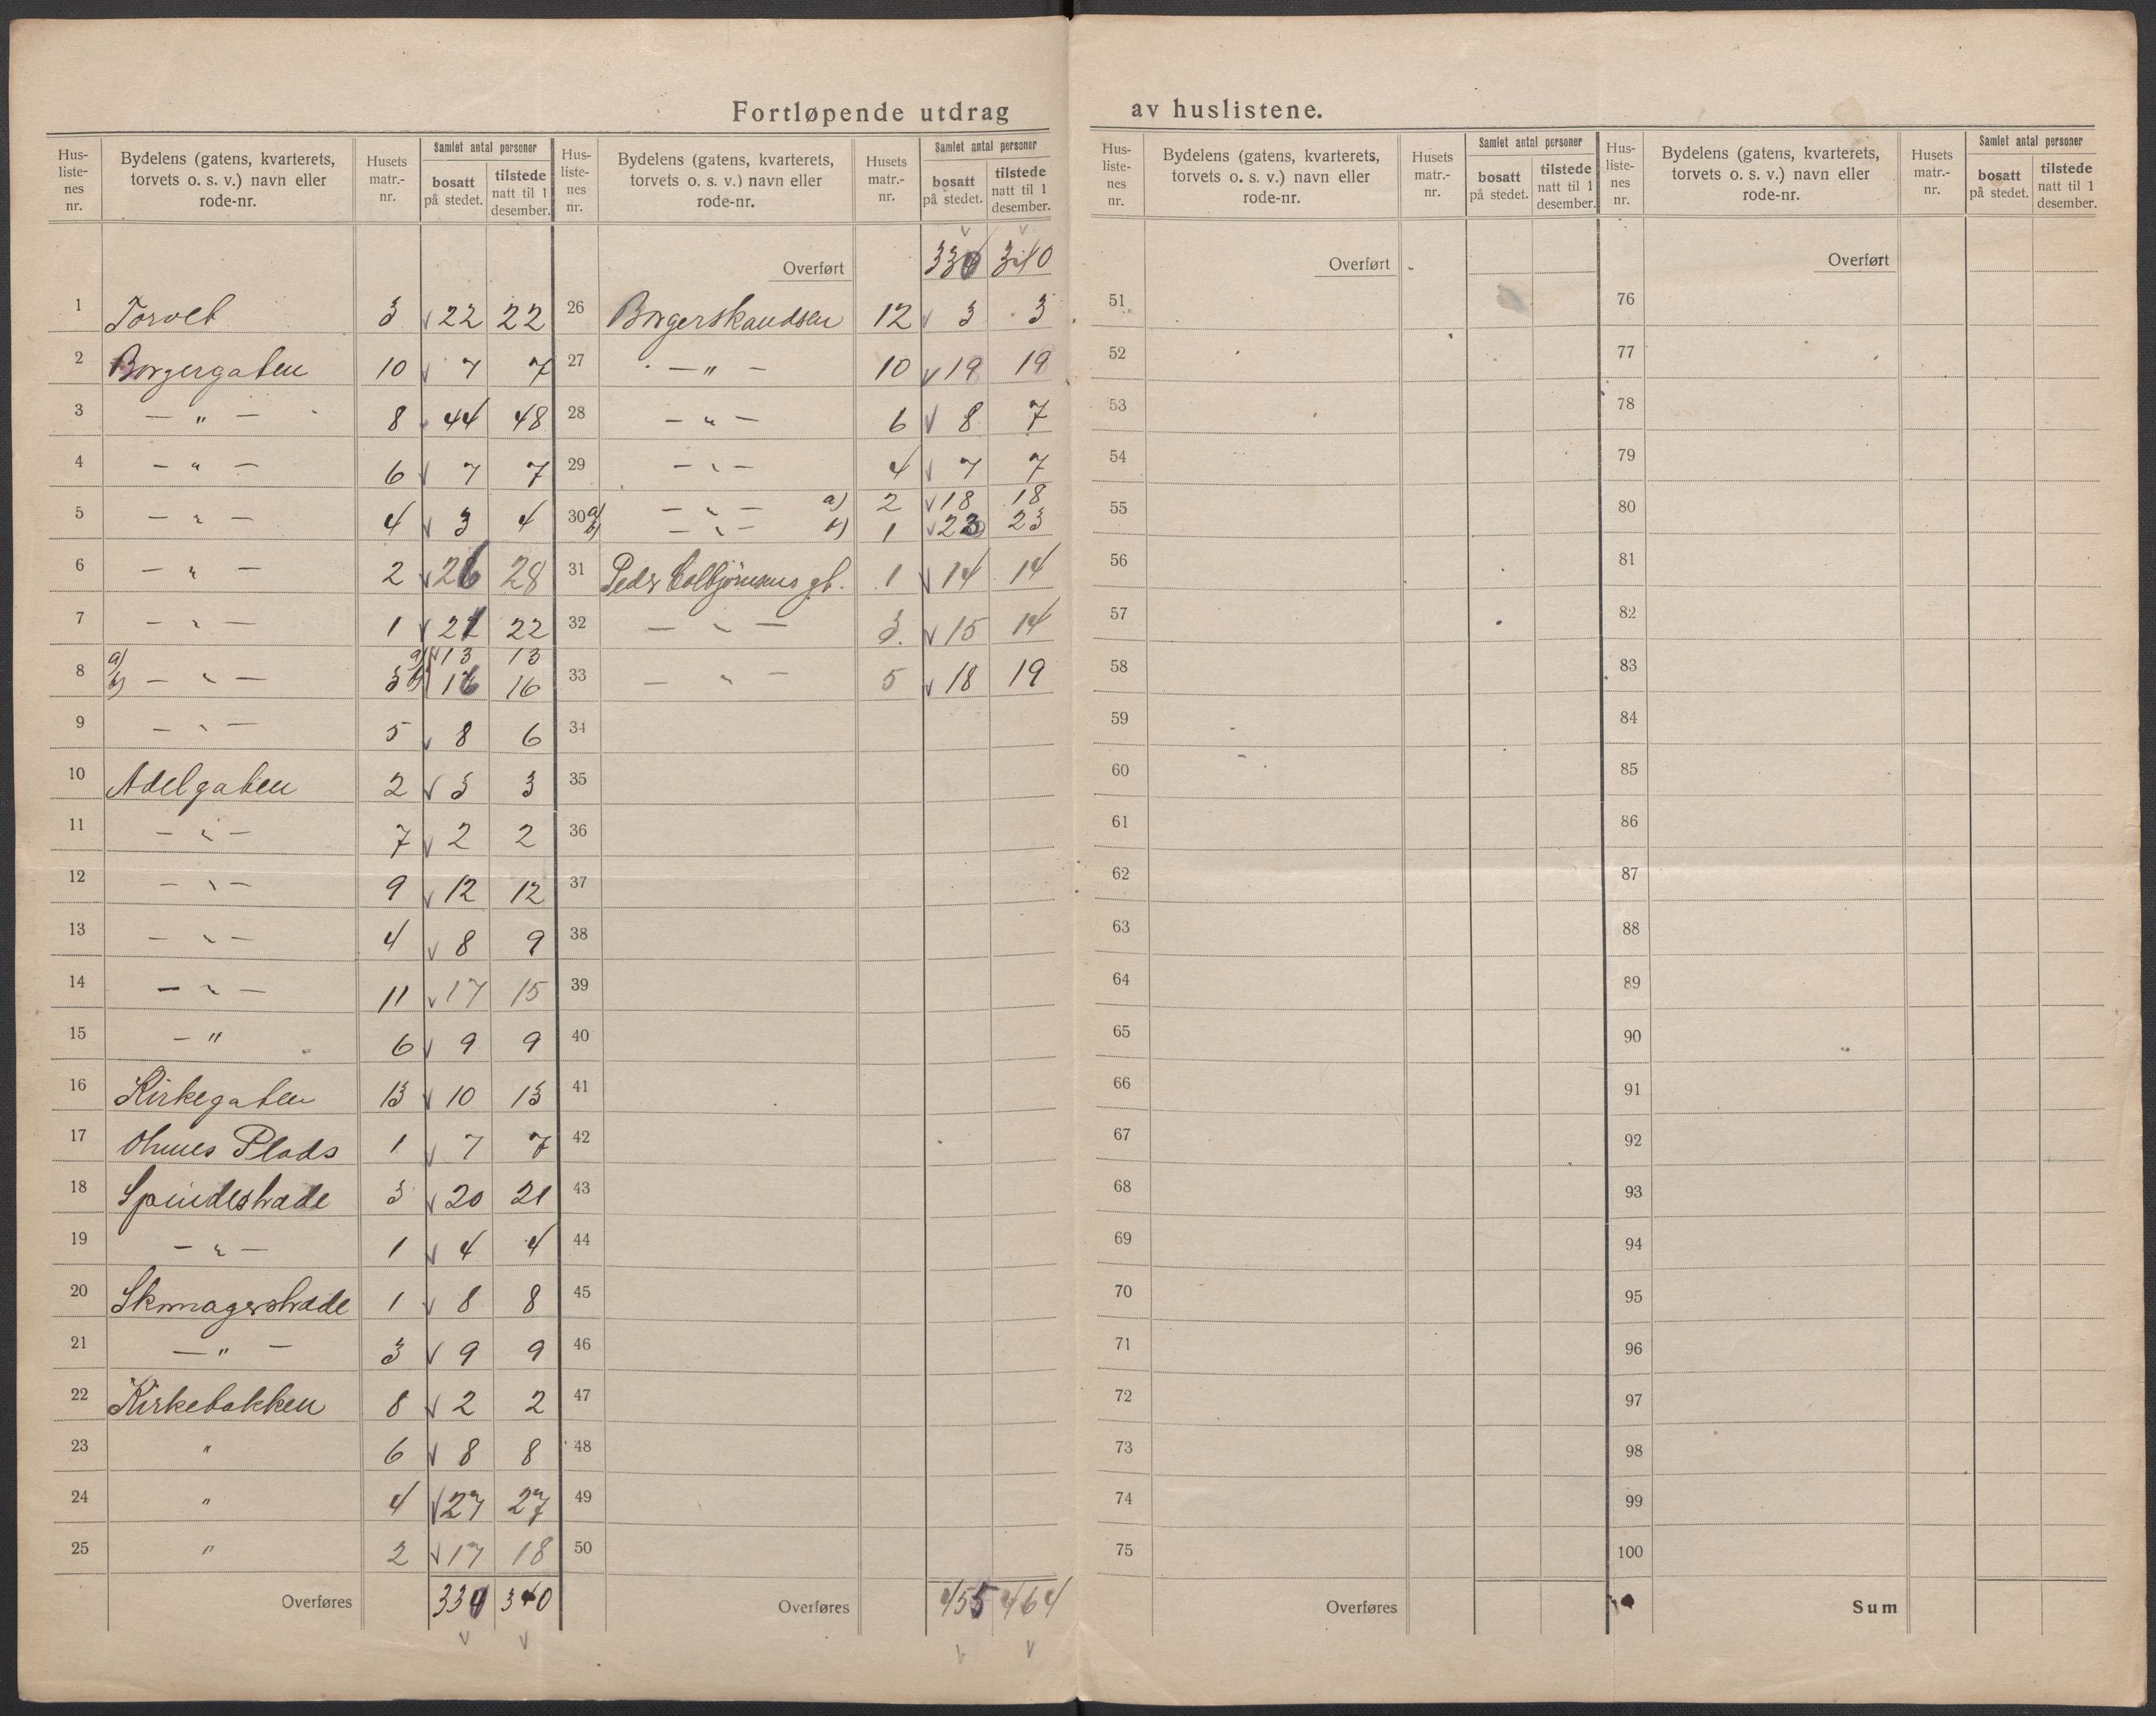 Fortløpende utdrag av huslistene.
Hus-listenes nr. | Bydelens (gatens, kvarterets, torvets o. s. v.) navn eller rode-nr. | Husets matr.-nr. | Samlet antal personer | bosatt på stedet. | tilstede natt til 1 desember.
1 Torvet 3 v 22 22
2 Borgergaten 10 v 7 7
3 — " — 8 44 48
4 — " — 6 v 7 7
5 — " — 4 v 3 4
6 — " — 2 v 26 28
7 — " — 1 v 21 22
8 a) a) v 13 13
b) — " — 3 b) 16 16
9 — " — 5 v 8 6
10 Adelgaten 2 v 3 3
11 — " — 7 v 2 2
12 — " — 9 v 12 12
13 — " — 4 v 8 9
14 — " — 11 v 17 15
15 — " 6 v 9 9
16 Kirkegaten 13 v 10 13
17 Ohmes Plads 1 v 7 7
18 Spindestræde 3 v 20 21
19 — " — 1 v 4 4
20 Skomagerstræde 1 v 8 8
21 — " — 3 v 9 9
22 Kirkebakken 8 v 2 2
23 " 6 v 8 8
24 " 4 v 27 27
25 " 2 v 17 18
Overføres 334 340
v v
Hus-listenes nr. | Bydelens (gatens, kvarterets, torvets o. s. v.) navn eller rode-nr. | Husets matr.-nr. | Samlet antal personer | bosatt på stedet. | tilstede natt til 1 desember.
v v
Overført 330 340
26 Borgerskandsen 12 v 3 3
27 — " — 10 v 19 19
28 — " — 6 v 8 7
29 — " — 4 v 7 7
30 a) — " — a) 2 v 18 18
b) — " — b) 1 v 23 23
31 Peder Colbjørnsens gt. 1 v 14 14
32 — " — 3. v 15 14
33 — " — 5 v 18 19
34
35
36
37
38
39
40
41
42
43
44
45
46
47
48
49
50
Overføres 455 464
v v
Hus-listenes nr. | Bydelens (gatens, kvarterets, torvets o. s. v.) navn eller rode-nr. | Husets matr.-nr. | Samlet antal personer | bosatt på stedet. | tilstede natt til 1 desember.
Overført
51
52
53
54
55
56
57
58
59
60
61
62
63
64
65
66
67
68
69
70
71
72
73
74
75
Overføres
Hus-listenes nr. | Bydelens (gatens, kvarterets, torvets o. s. v.) navn eller rode-nr. | Husets matr.-nr. | Samlet antal personer | bosatt på stedet. | tilstede natt til 1 desember.
Overført
76
77
78
79
80
81
82
83
84
85
86
87
88
89
90
91
92
93
94
95
96
97
98
99
100
Sum